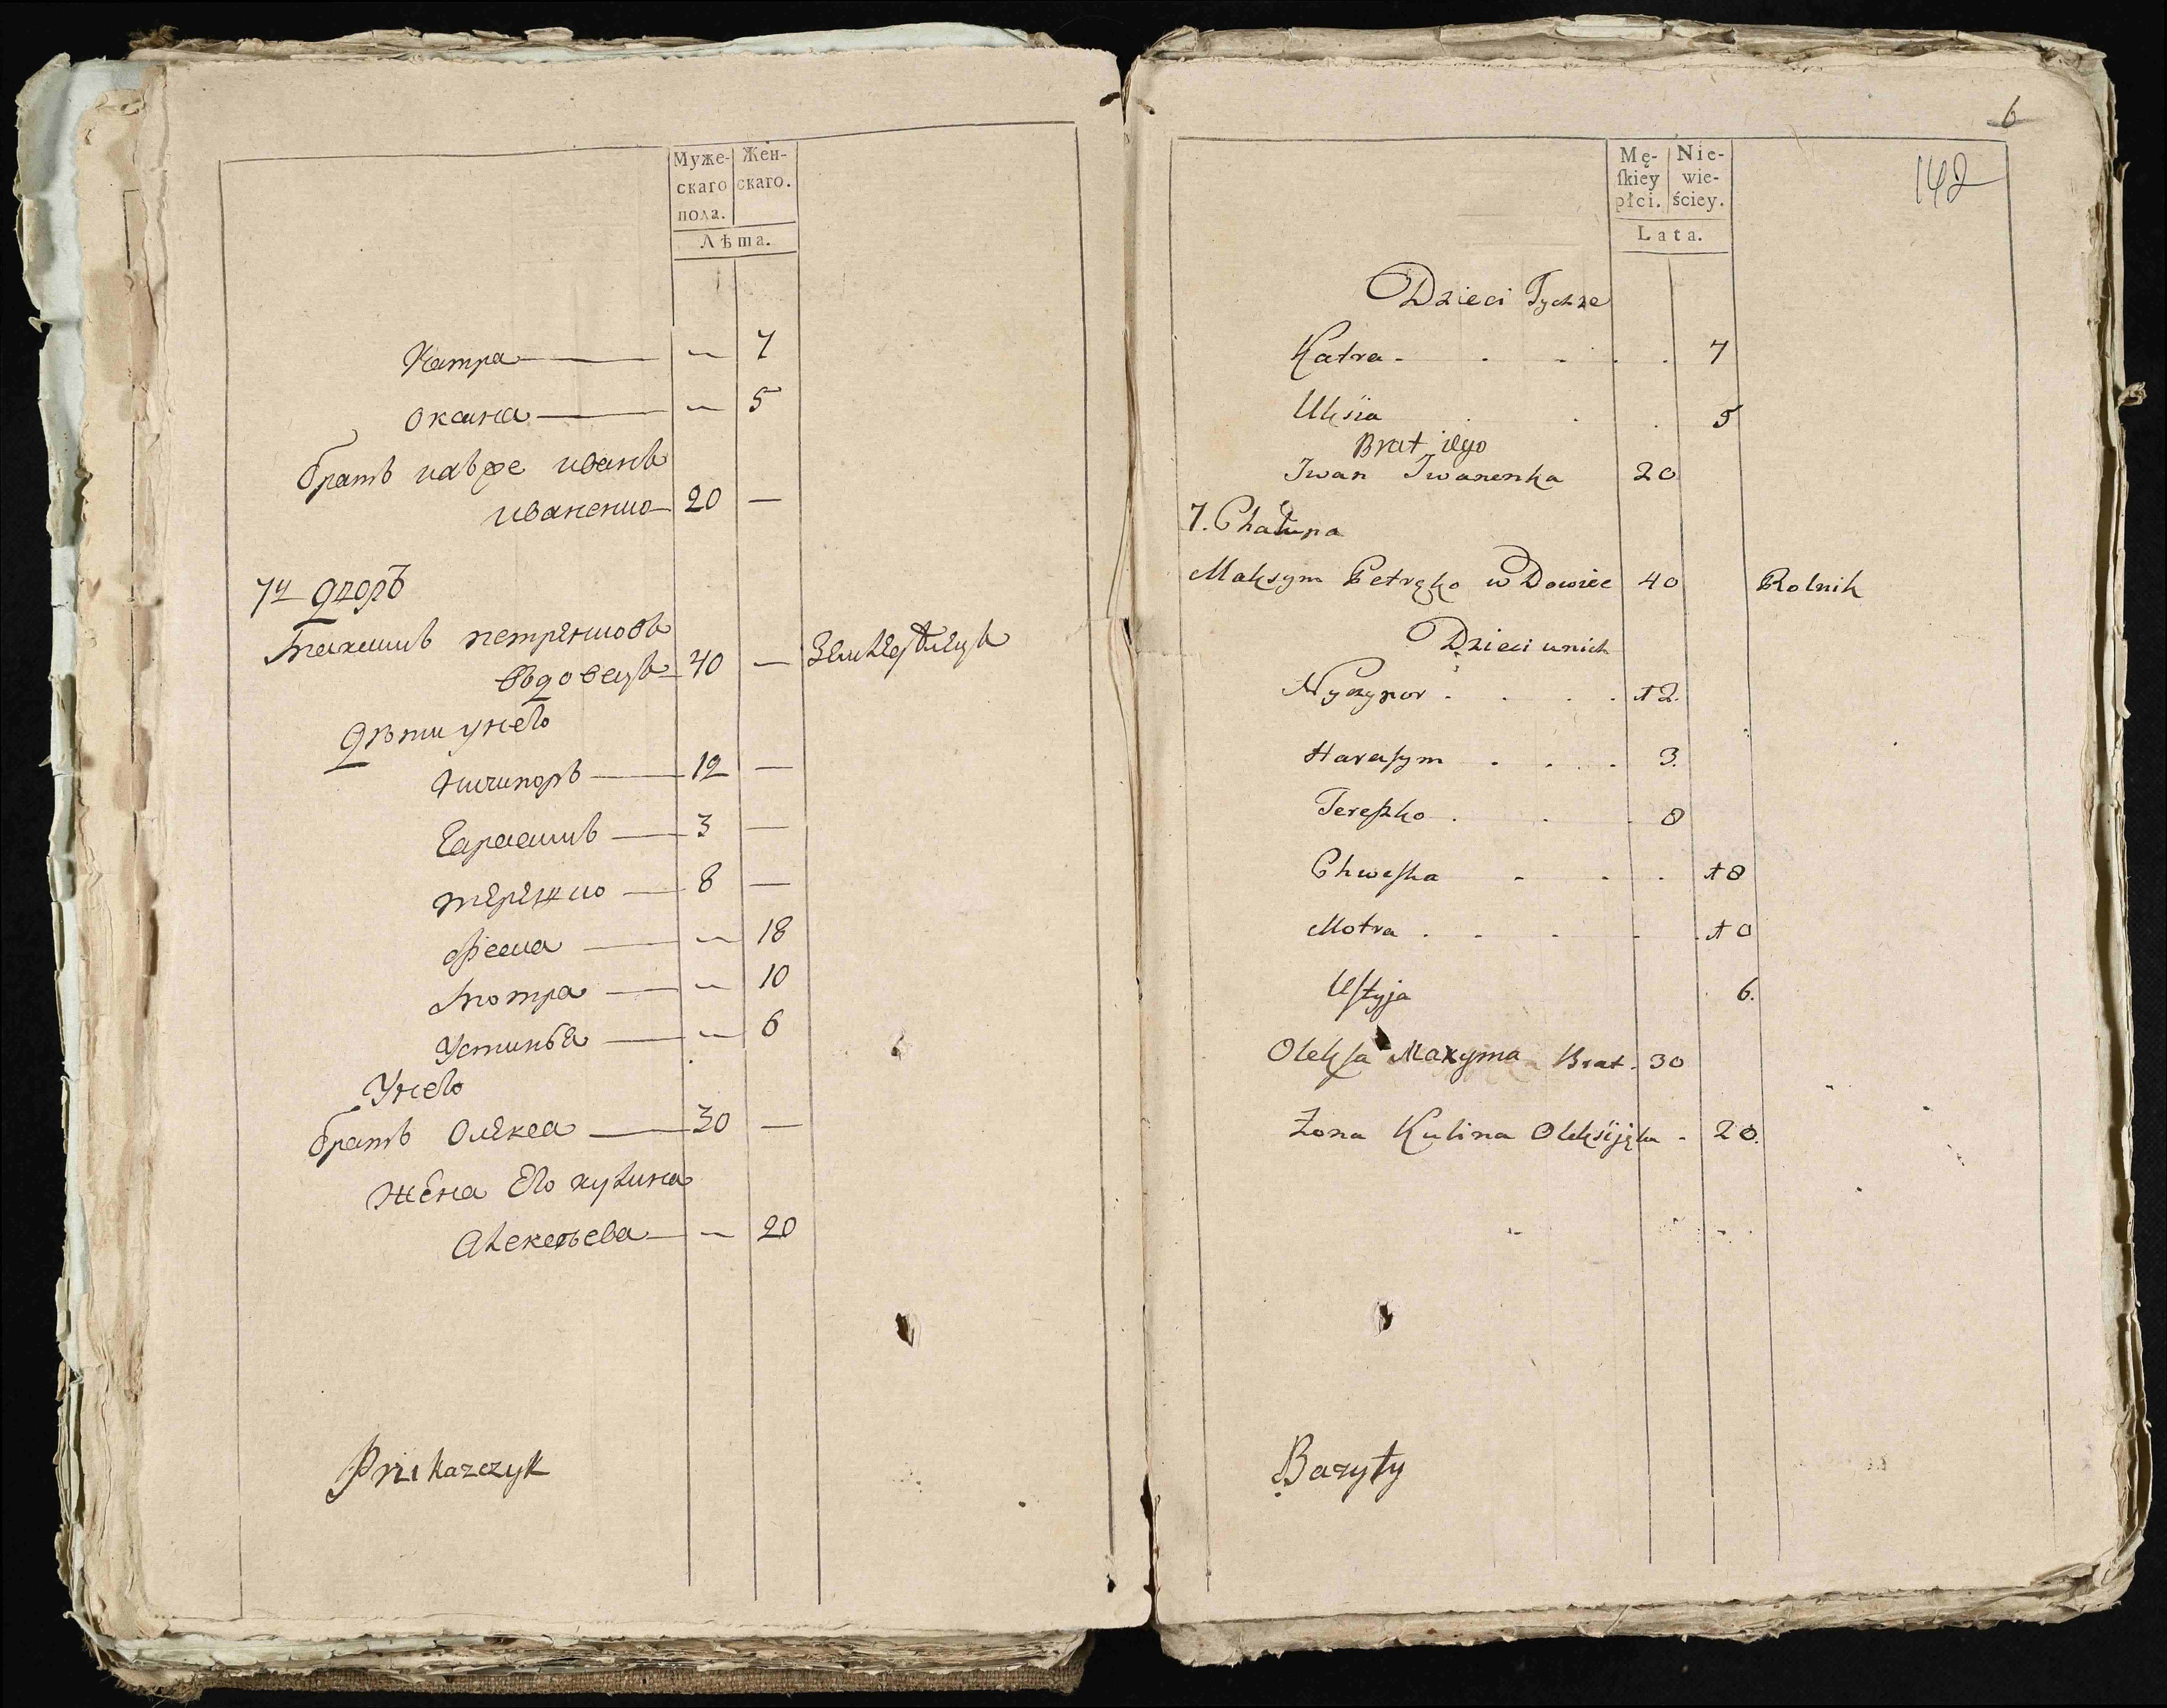 Муже-
скаго
пола.
Жен-
скаго.
Лѣта.
Катра — — 7
оксана — — 5
братъ ивже иванъ
иваненко — 20 —
7й дворъ
Максимъ петренковъ
вдовецъ 40 — Земледѣлецъ
Дѣти унего
Ничипоръ — 12 —
Гарасимъ — 3 —
терешко — 8 —
Феска — — 18
Мотра — — 10
Устинья — — 6
Унего
братъ Олекса — 30 —
жена Его кулина
Алексѣева — — 20
Prikazczyk
6
142
Mę-
ſkiey
płci.
Nie-
wie-
ściey.
Lata.
Dzieci Tychże
Katra - . . . . 7
Uksiia . . . 5
Brat iego
Iwan Iwanenka 20
7. Chałupa
Maksym Petręko wDowiec 40 Rolnik
Dzieci unich
Nyczypor . . . . 12.
Haraſym . . . 3.
Tereſzko . . . 8
Chweſka - . . 18
Motra . . . . 10
Uſtyja 6.
Olekſa Maxyma Brat. 30
Żona Kulina Oleksijęka - 20.
Bazyły